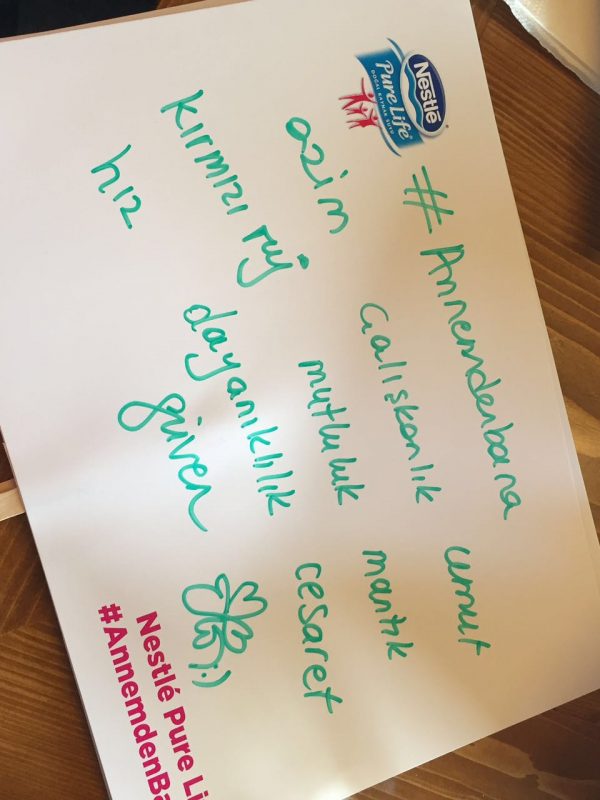 Nestlé
Pure Life
DOĞAL KAYNAK SUYU
#Annemdenbana umut
azim Çalışkanlık mantık
kırmızı ruj mutluluk cesaret
hız dayanıklılık
güven :)
Nestlé Pure Li
#AnnemdenBa